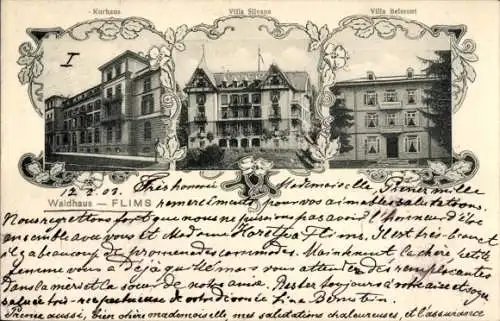 Kurhaus
Villa Silvana
Villa Belmont
I
Waldhaus — FLIMS
12.2.03. Très honorée Mademoiselle, Prenez mille
remerciments pour vos aimables salutations.
Nous regrettons fort que nous ne puissions pas avoir l'honneur d'être
ensemble avec vous et Madame à Flims. Il est très-beau et
il y a beaucoup de promenades commodes. Maintenant la chère petite
femme vous a déjà qu'elle mais vous attendez des remplacantes
dans la mer et la soeur de notre amie. Restez toujours à votre aise et soyez
saluée très-respectueuse de votre dévouée Lina Bernstein.
Prenez aussi, bien chère mademoiselle, mes salutations chaleureuses, et l'assurance